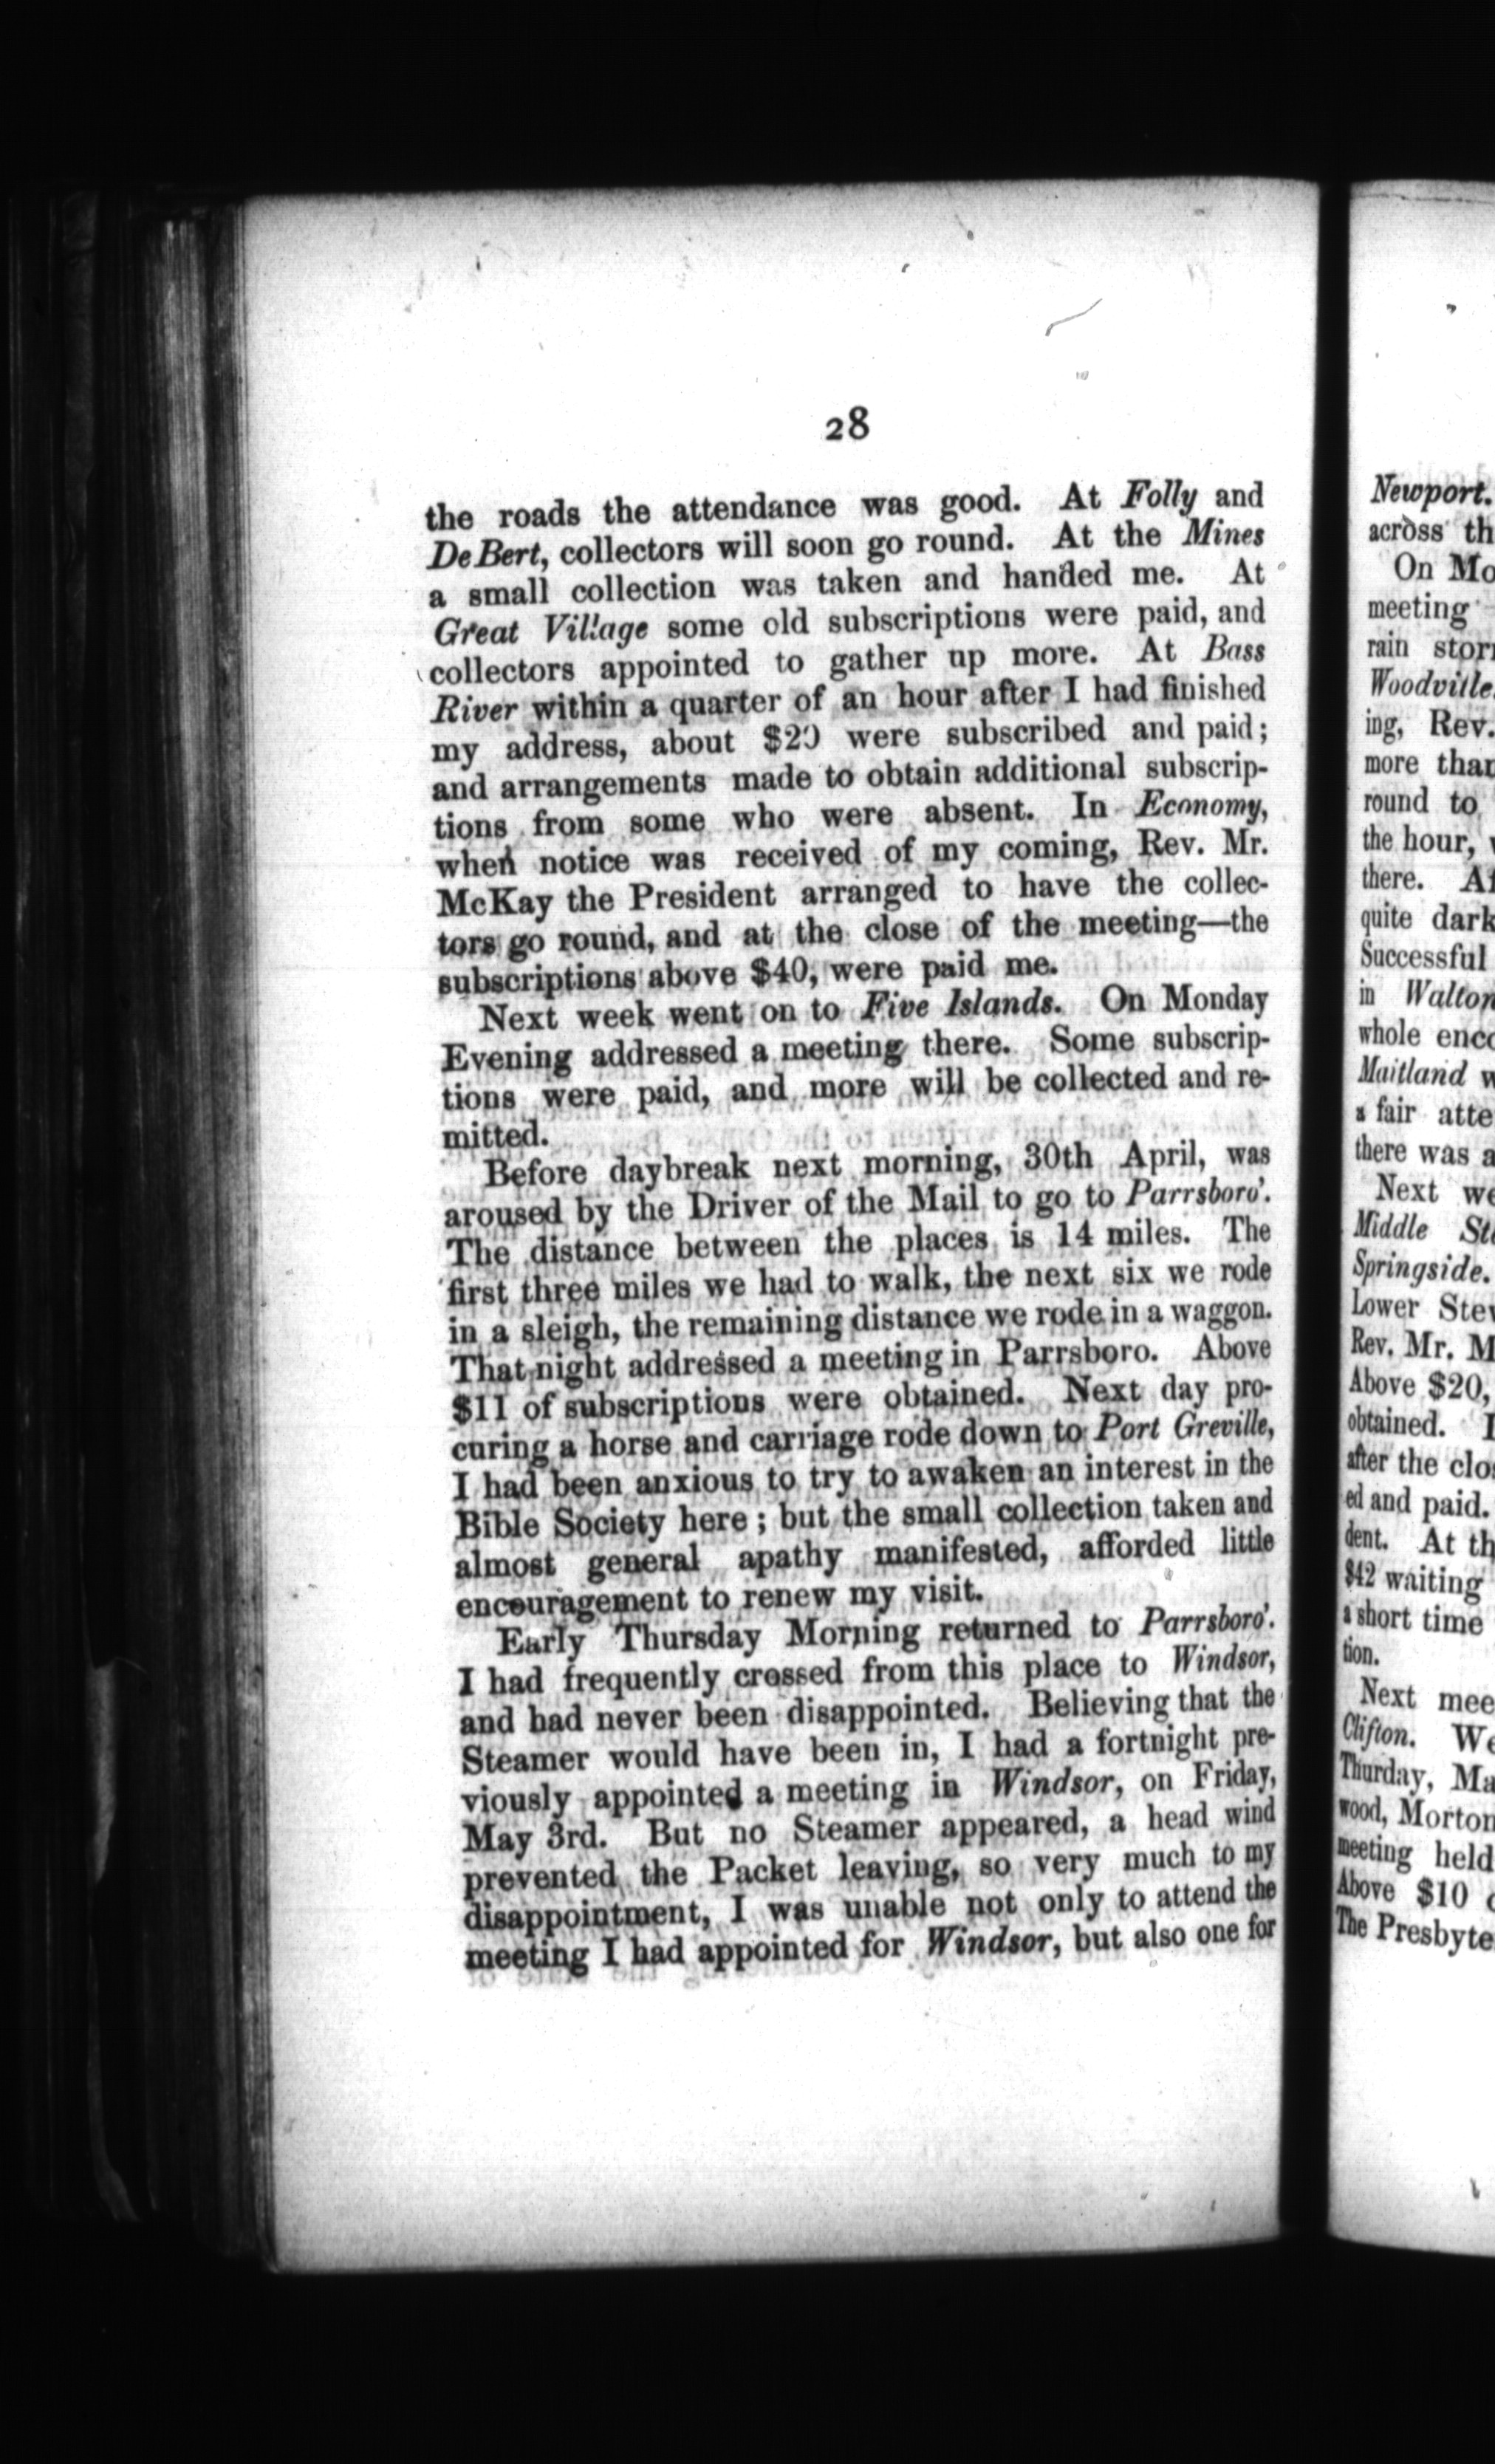 28
the roads the attendance was good. At Folly and
DeBert, collectors will soon go round. At the Mines
a small collection was taken and handed me. At
Great Village some old subscriptions were paid, and
collectors appointed to gather up more. At Bass
River within a quarter of an hour after I had finished
my address, about $20 were subscribed and paid;
and arrangements made to obtain additional subscrip-
tions from some who were absent. In Economy,
when notice was received of my coming, Rev. Mr.
McKay the President arranged to have the collec-
tors go round, and at the close of the meeting—the
subscriptions above $40, were paid me.
Next week went on to Five Islands. On Monday
Evening addressed a meeting there. Some subscrip-
tions were paid, and more will be collected and re-
mitted.
Before daybreak next morning, 30th April, was
aroused by the Driver of the Mail to go to Parrsboro'.
The distance between the places is 14 miles. The
first three miles we had to walk, the next six we rode
in a sleigh, the remaining distance we rode in a waggon.
That night addressed a meeting in Parrsboro. Above
$11 of subscriptions were obtained. Next day pro-
curing a horse and carriage rode down to Port Greville,
I had been anxious to try to awaken an interest in the
Bible Society here; but the small collection taken and
almost general apathy manifested, afforded little
encouragement to renew my visit.
Early Thursday Morning returned to Parrsboro'.
I had frequently crossed from this place to Windsor,
and had never been disappointed. Believing that the
Steamer would have been in, I had a fortnight pre-
viously appointed a meeting in Windsor, on Friday,
May 3rd. But no Steamer appeared, a head wind
prevented the Packet leaving, so very much to my
disappointment, I was unable not only to attend the
meeting I had appointed for Windsor, but also one for
Newport.
across th
On Mo
meeting
rain stor
Woodville
ing, Rev.
more than
round to
the hour,
there. Af
quite dark
Successful
in Walton
whole enco
Maitland w
a fair atte
there was a
Next we
Middle Ste
Springside.
Lower Stew
Rev. Mr. M
Above $20,
obtained. I
after the clos
ed and paid.
dent. At th
$42 waiting
a short time
tion.
Next mee
Clifton. We
Thurday, Ma
wood, Morton
meeting held
Above $10
The Presbyte